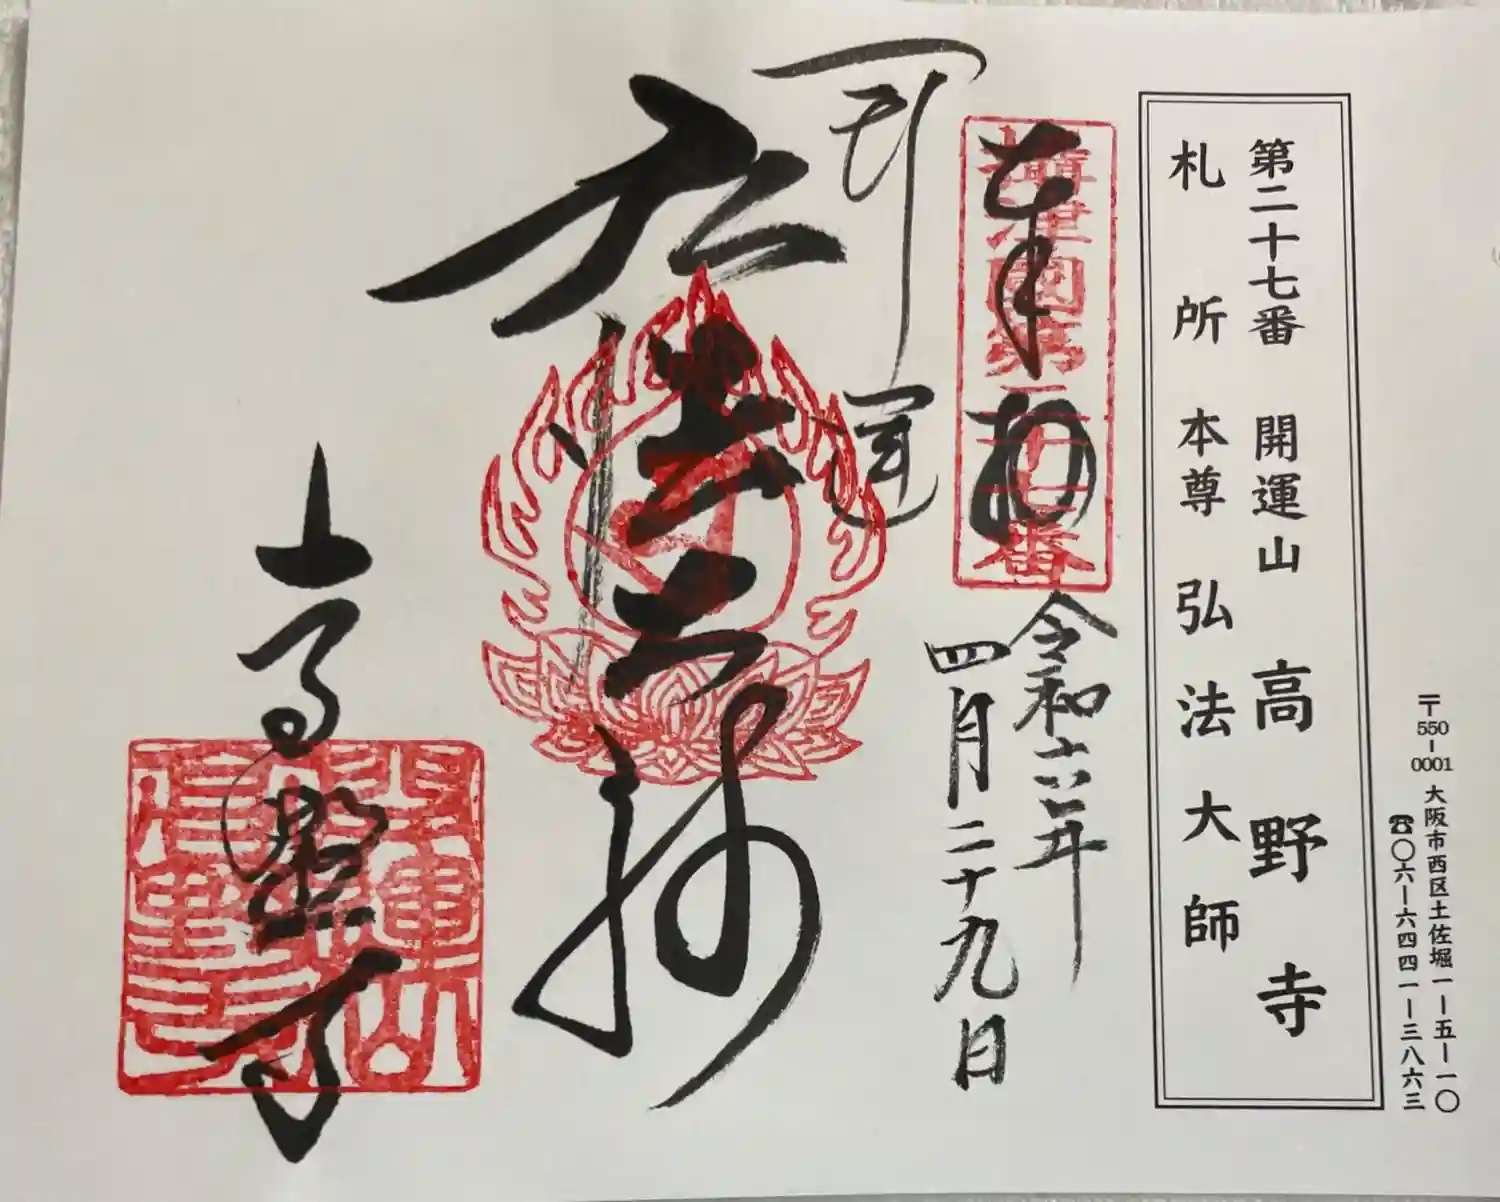 〒550-0001 大阪市西区土佐堀一ー五ー一〇
☎〇六ー六四四一ー三八六三
第二十七番 開運山 高野寺
札所本尊 弘法大師
奉拝
摂津国第二十七番
令和六年
四月二十九日
開運
弘法大師
高野寺